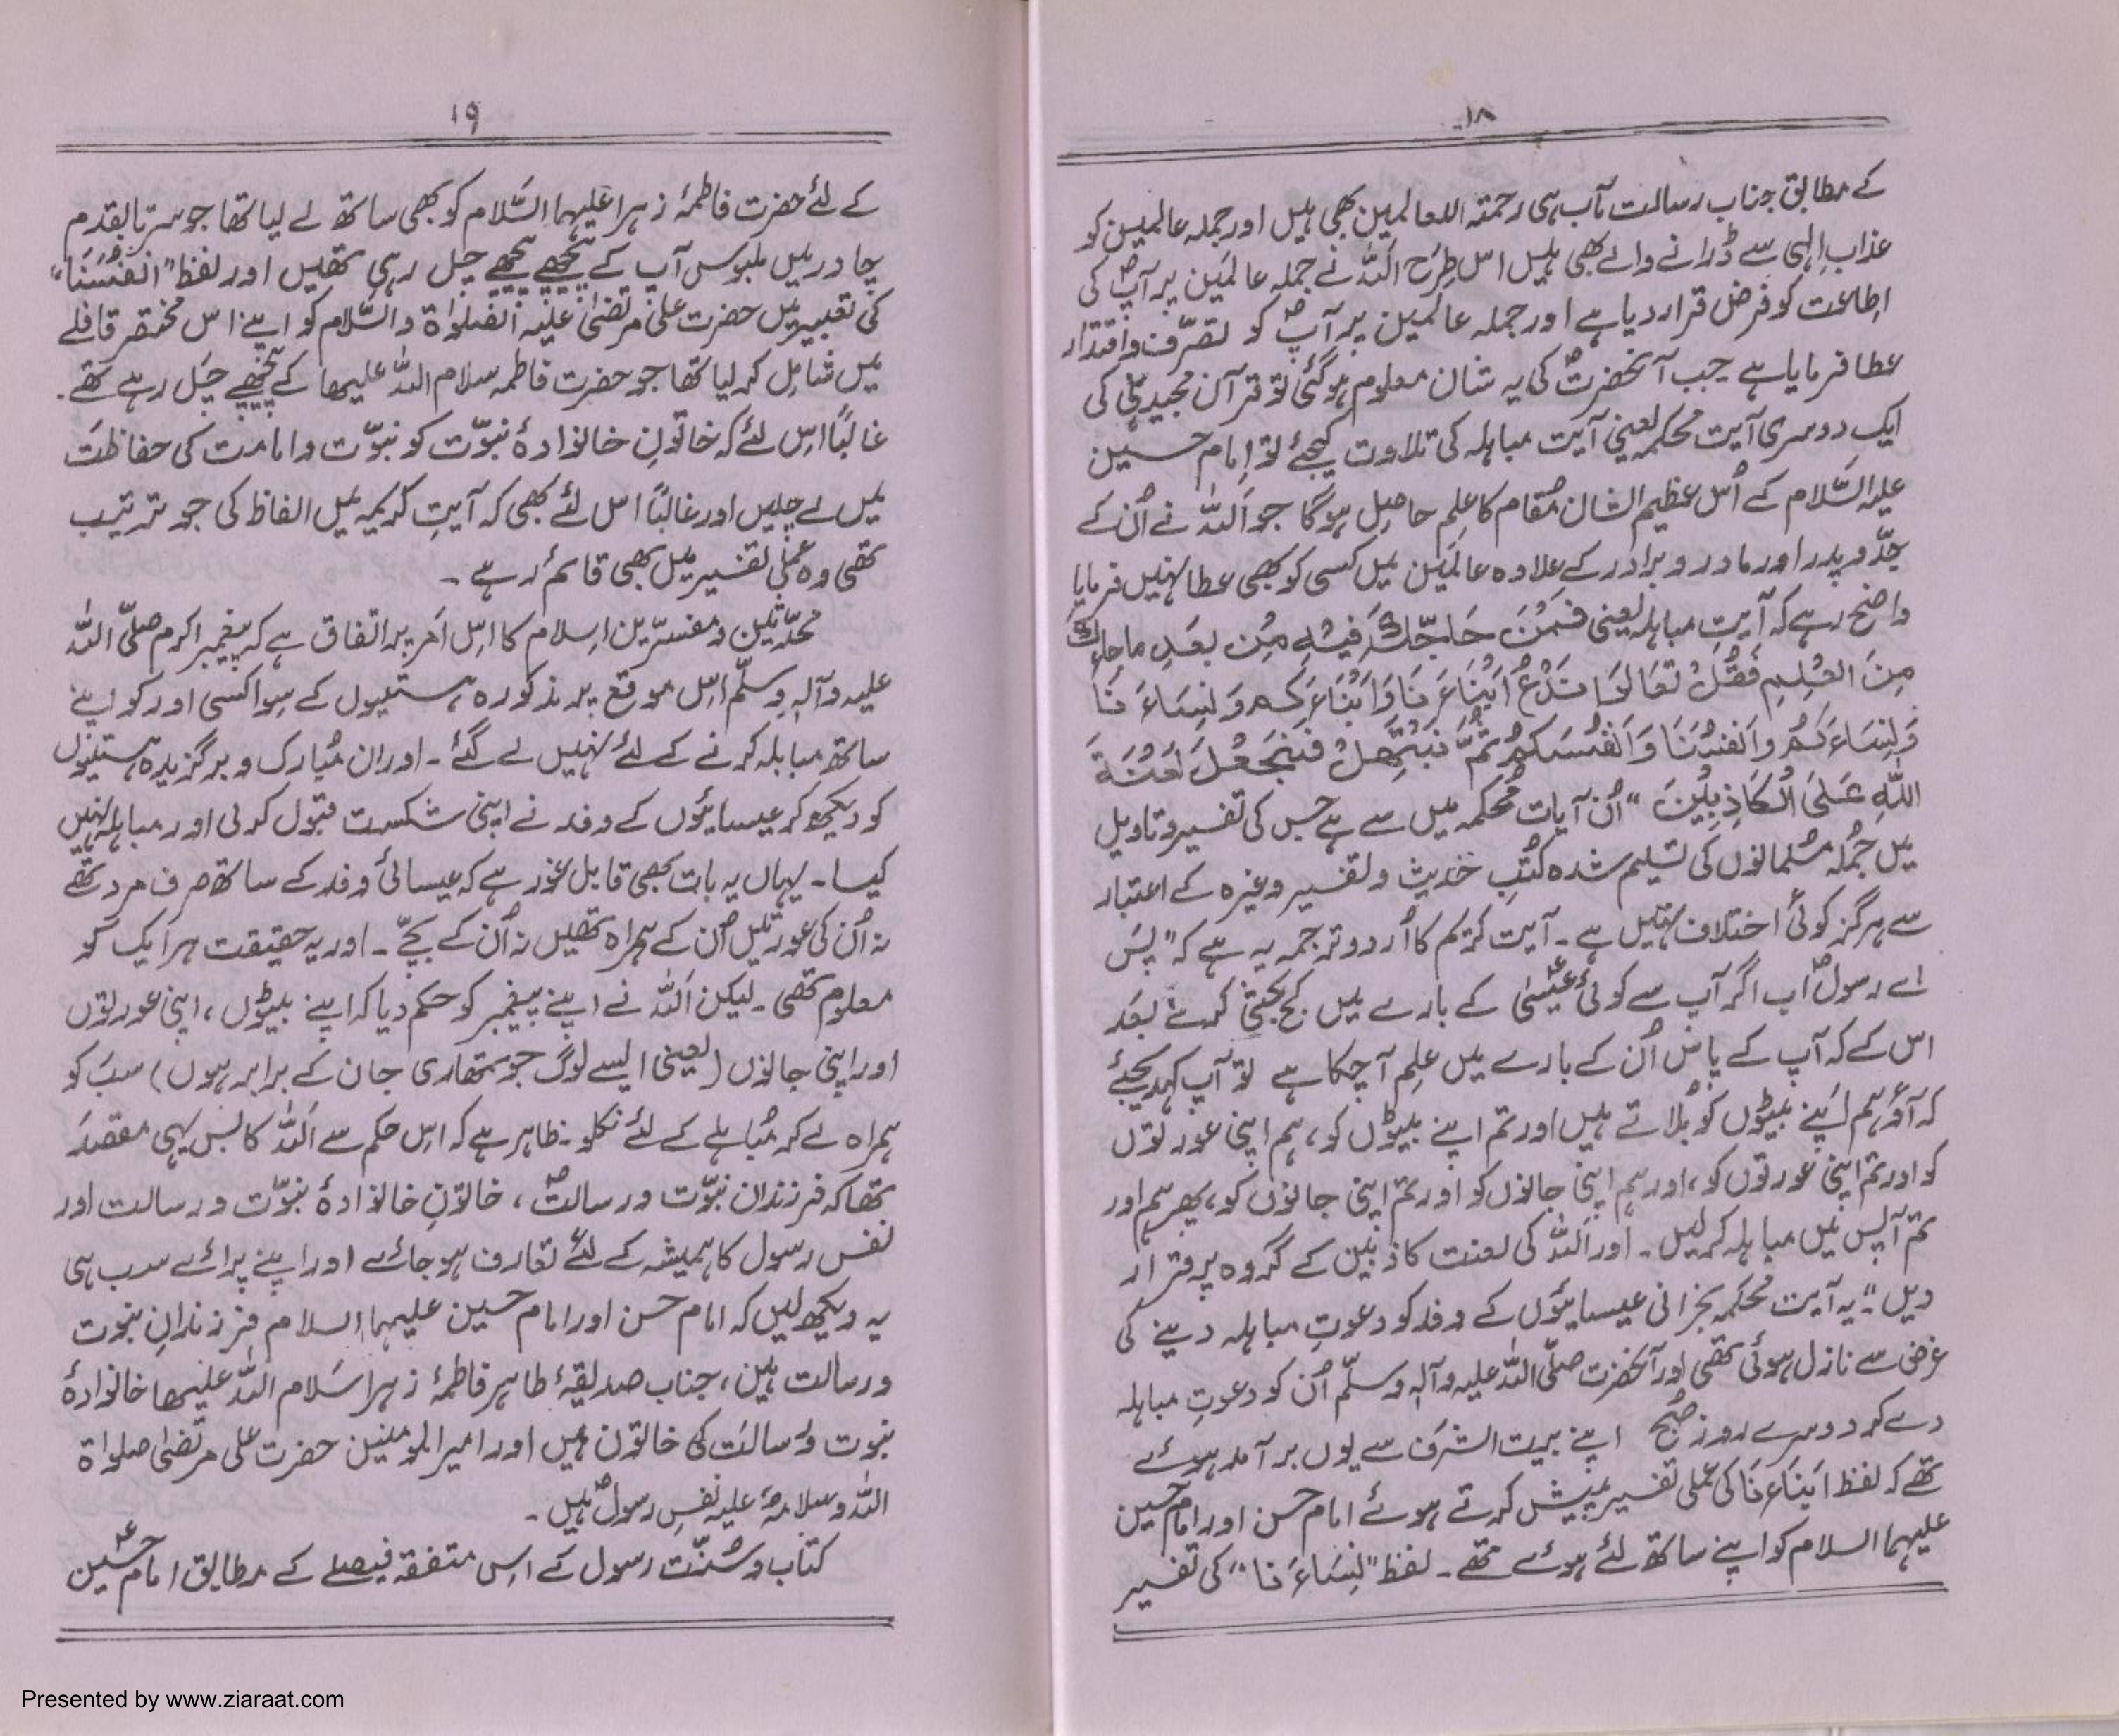 ۱۸
کے مطابق جناب رسالت مآب ہی رحمتہ اللعالمین بھی ہیں اور جملہ عالمین کو
عذابِ الٰہی سے ڈرانے والے بھی ہیں اس طرح اللہ نے جملہ عالمین پر آپؐ کی
اطاعت کو فرض قرار دیا ہے اور جملہ عالمین پر آپؐ کو تصرّف و اقتدار
عطا فرمایا ہے جب آنحضرتؐ کی یہ شان معلوم ہو گئی تو قرآن مجید ہی کی
ایک دوسری آیت محکمہ یعنی آیت مباہلہ کی تلاوت کیجئے تو امام حسین
علیہ السَّلام کے اُس عظیم الشان مقام کا علم حاصل ہوگا جو اللہ نے اُن کے
جدّ و پدر اور مادر و برادر کے علاوہ عالمین میں کسی کو بھی عطا نہیں فرمایا
واضح رہے کہ آیتِ مباہلہ یعنی فَمَنْ حَاجَّكَ فِيْهِ مِنْ بعدِ ماجاءك
مِنَ العِلمِ فَقُلْ تَعَالَوْا نَدْعُ اَبْنَاءَنَا وَاَبْنَاءَكم وَنِسَاءَنَا
وَنِسَاءَكُمْ وَاَنفُسَنَا وَاَنفُسَكُمْ ثُمَّ نَبْتَهِلْ فَنَجْعَلْ لَعْنَةَ
اللّٰهِ عَلَى الْكَاذِبِيْنَ “ اُن آیات محکمہ میں سے ہے جس کی تفسیر و تاویل
میں جُملہ مُسلمانوں کی تسلیم شدہ کُتبِ حدیث و تفسیر وغیرہ کے اعتبار
سے ہرگز کوئی اختلاف نہیں ہے۔ آیت کریم کا اُردو ترجمہ یہ ہے کہ ”پس
اے رسولؐ اب اگر آپ سے کوئی عیسیٰؑ کے بارے میں کج بحثی کرے بعد
اس کے کہ آپ کے پاس اُن کے بارے میں علم آ چکا ہے تو آپ کہہ دیجئے
کہ آؤ ہم اپنے بیٹوں کو بُلاتے ہیں اور تم اپنے بیٹوں کو، ہم اپنی عورتوں
کو اور تم اپنی عورتوں کو، اور ہم اپنی جانوں کو اور تم اپنی جانوں کو، پھر ہم اور
تم آپس میں مباہلہ کر لیں۔ اور اللہ کی لعنت کاذبین کے گروہ پر قرار
دیں“ یہ آیت محکمہ نجرانی عیسائیوں کے وفد کو دعوتِ مباہلہ دینے کی
غرض سے نازل ہوئی تھی اور آنحضرت صلّی اللہ علیہ وآلہٖ وسلّم اُن کو دعوتِ مباہلہ
دے کر دوسرے روز صبح اپنے بیت الشرف سے یوں برآمد ہوئے
تھے کہ لفظ اَبنَاءَنَا کی عملی تفسیر پیش کرتے ہوئے امام حسن اور امام حسین
علیہما السلام کو اپنے ساتھ لئے ہوئے تھے۔ لفظ ”نِسَاءَنا“ کی تفسیر
۱۹
کے لئے حضرت فاطمۂ زہرا علیہا السَّلام کو بھی ساتھ لے لیا تھا جو سرتا بقدم
چادر میں ملبوس آپ کے پیچھے پیچھے چل رہی تھیں اور لفظ ”اَنفُسَنَا“
کی تعبیر میں حضرت علی مرتضیٰ علیہ الصلواۃ والسّلام کو اپنے اس مختصر قافلے
میں شامل کر لیا تھا جو حضرت فاطمہ سلام اللہ علیہا کے پیچھے چل رہے تھے۔
غالباً اس لئے کہ خاتونِ خانوادۂ نبوّت کو نبوّت و امامت کی حفاظت
میں لے چلیں اور غالباً اس لئے بھی کہ آیتِ کریمہ میں الفاظ کی جو ترتیب
تھی وہ عملی تفسیر میں بھی قائم رہے۔
محدّثین و مفسّرین اسلام کا اس امر پر اتفاق ہے کہ پیغمبر اکرم صلّی اللہ
علیہ وآلہٖ وسلّم اس موقع پر مذکورہ ہستیوں کے سوا کسی اور کو اپنے
ساتھ مباہلہ کرنے کے لئے نہیں لے گئے۔ اور ان مُبارک و برگزیدہ ہستیوں
کو دیکھ کر عیسائیوں کے وفد نے اپنی شکست قبول کر لی اور مباہلہ نہیں
کیا۔ یہاں یہ بات بھی قابل غور ہے کہ عیسائی وفد کے ساتھ صرف مرد تھے
نہ اُن کی عورتیں اُن کے ہمراہ تھیں نہ اُن کے بچّے۔ اور یہ حقیقت ہر ایک کو
معلوم تھی۔ لیکن اللہ نے اپنے پیغمبر کو حکم دیا کہ اپنے بیٹوں، اپنی عورتوں
اور اپنی جانوں (یعنی ایسے لوگ جو تمھاری جان کے برابر ہوں) سب کو
ہمراہ لے کر مُباہلے کے لئے نکلو۔ ظاہر ہے کہ اس حکم سے اللہ کا بس یہی مقصد
تھا کہ فرزندان نبوّت و رسالتؐ، خاتونِ خانوادۂ نبوّت و رسالت اور
نفس رسول کا ہمیشہ کے لئے تعارف ہو جائے اور اپنے پرائے سب ہی
یہ دیکھ لیں کہ امام حسن اور امام حسین علیہما السلام فرزندانِ نبوت
و رسالت ہیں، جناب صدیقۂ طاہر فاطمۂ زہرا سَلام اللہ علیہا خانوادۂ
نبوت و رسالت کی خاتون ہیں اور امیر المومنین حضرت علی مرتضیٰ صلواۃ
اللہ وسلامہٗ علیہ نفسِ رسولؐ ہیں۔
کتاب و سُنّت رسول کے اس متفقہ فیصلے کے مطابق امام حسینؑ
Presented by www.ziaraat.com